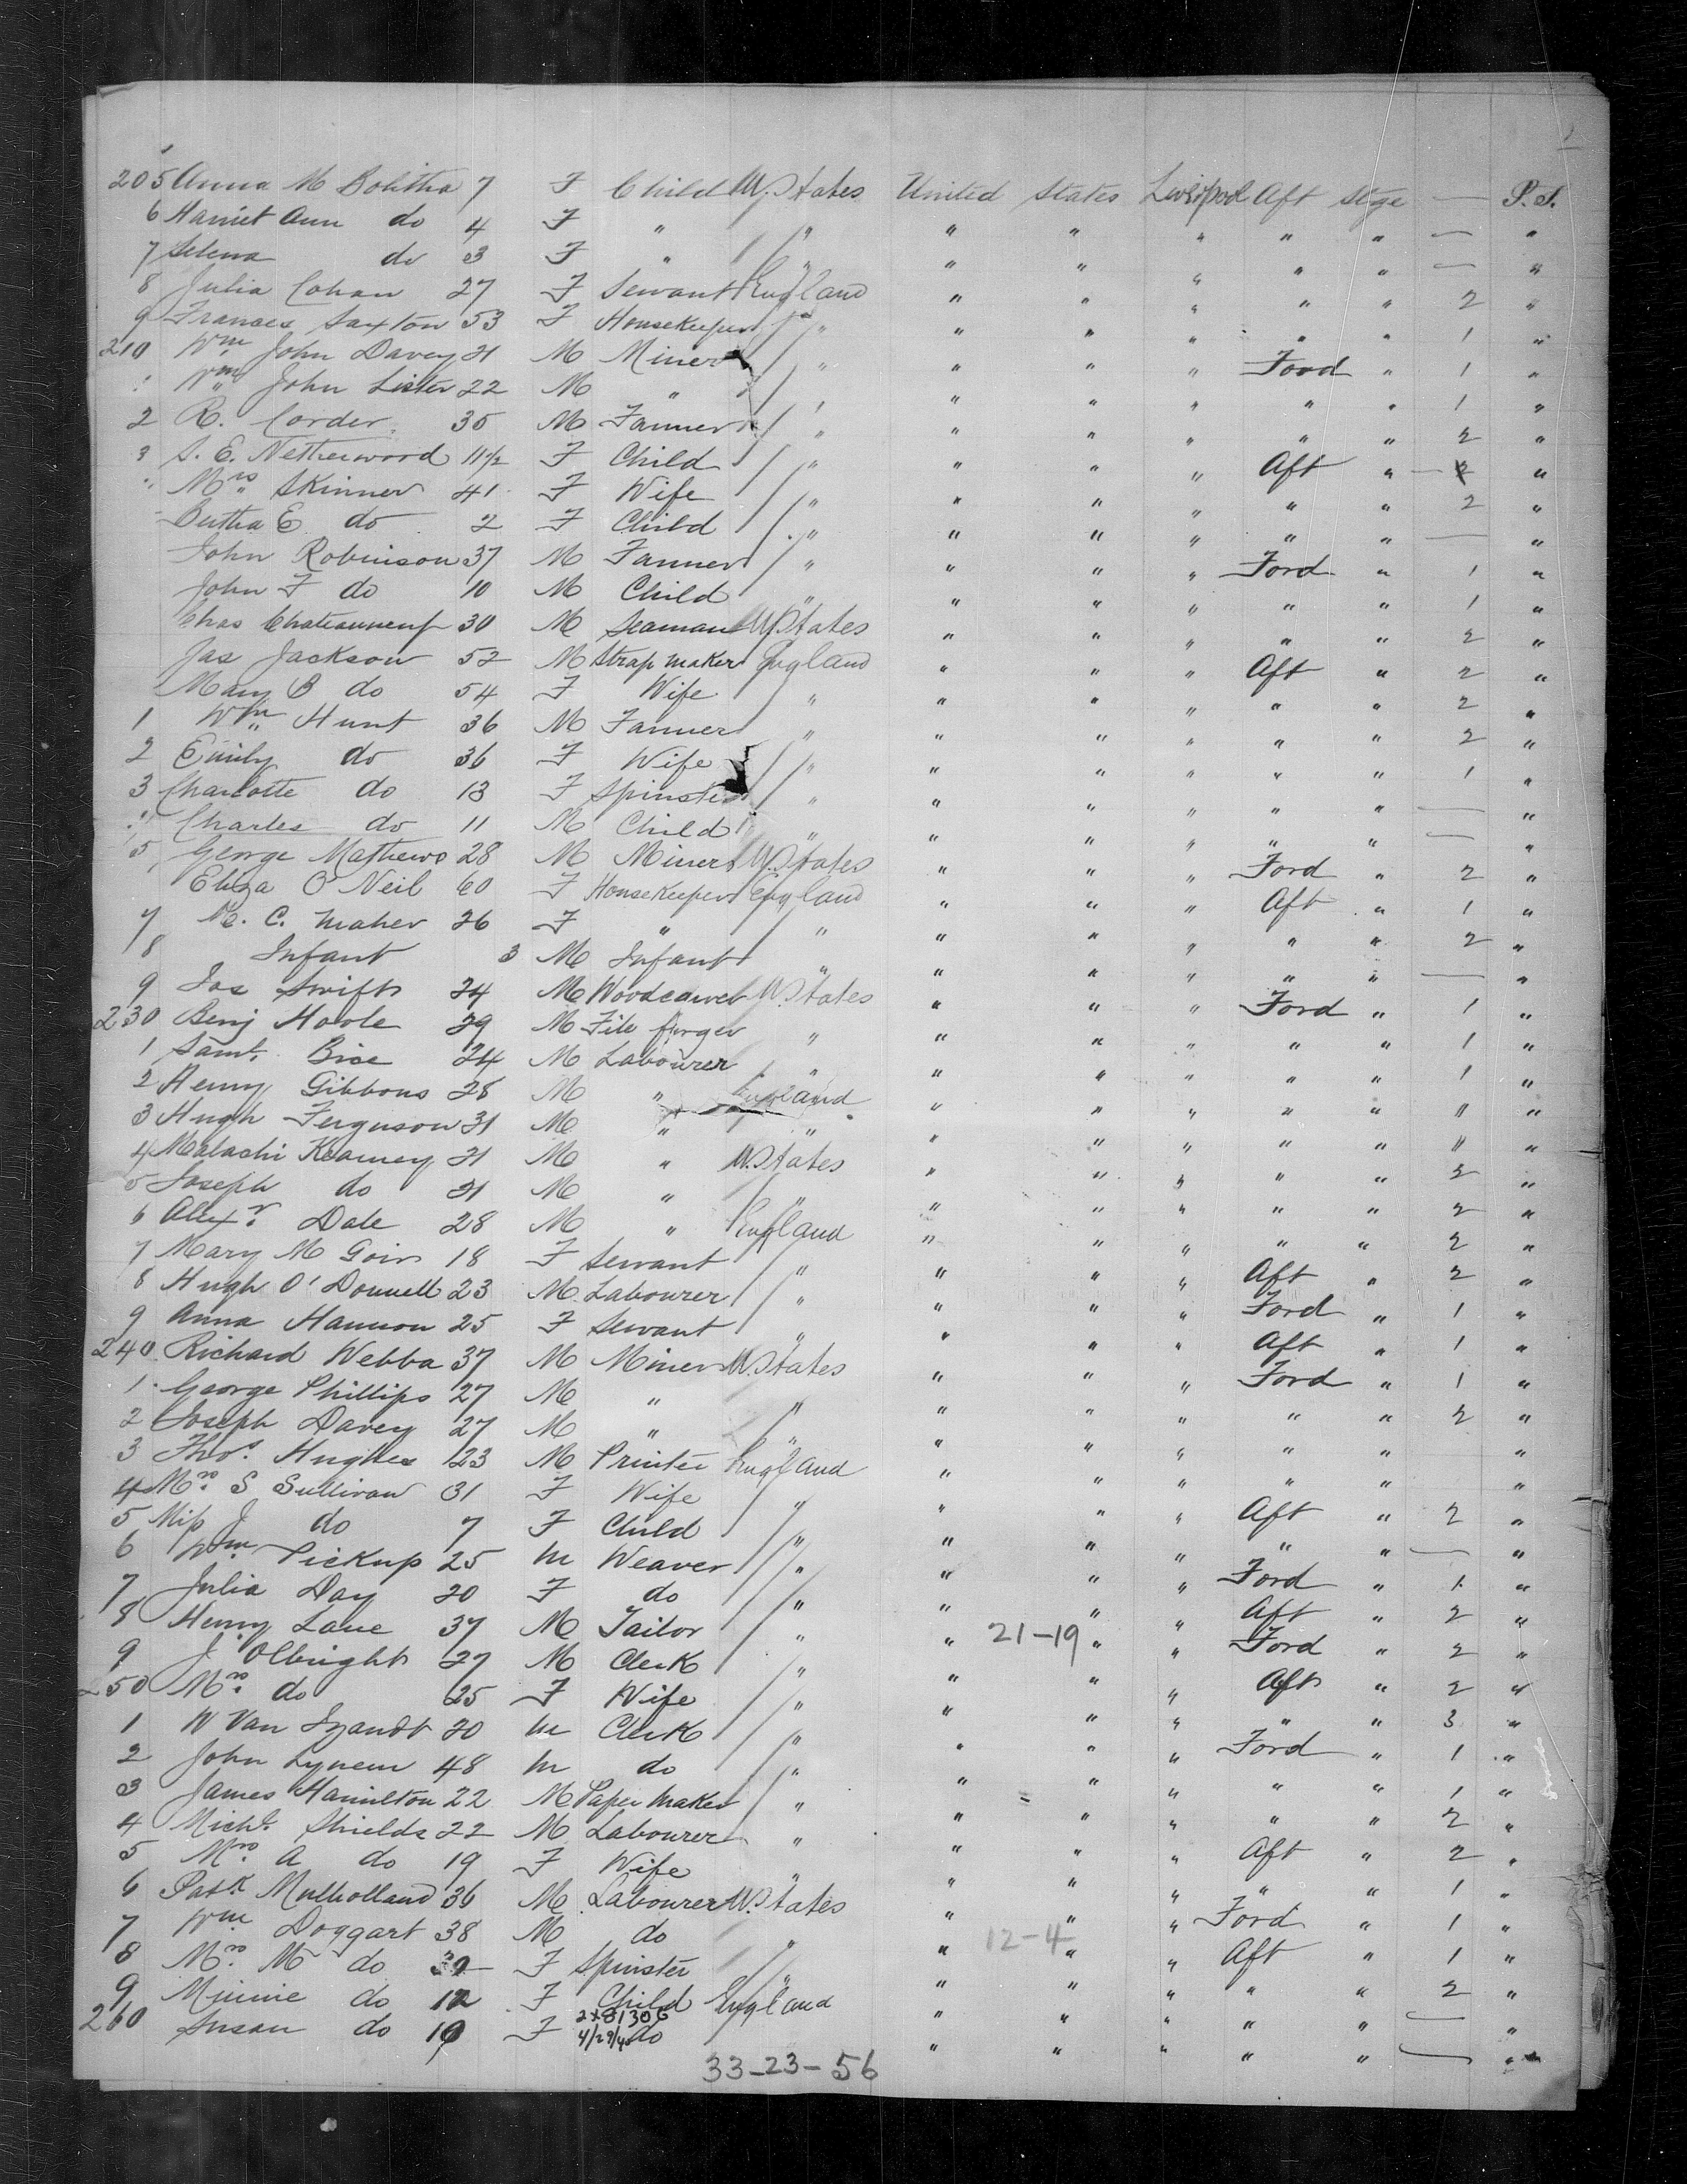 205 Anna M Bolitha 7 F Child U. States United States Liverpool Aft Stge — P.S.
6 Harriet Ann do 4 F " " " " " " " — "
7 Selena do 3 F " " " " " " " — "
8 Julia Cohan 27 F Servant England " " " " " 2 "
9 Frances Saxton 53 F Housekeeper " " " " " " 1 "
210 Wm John Davey 21 M Miner " " " " Ford " 1 "
Wm John Lister 22 M " " " " " " " 1 "
2 R. Corder 35 M Farmer " " " " " " 2 "
3 S. E. Netherwood 11½ F Child " " " " Aft " — "
Mrs Skinner 41 F Wife " " " " " " 2 "
Bertha E do 2 F Child " " " " " " — "
John Robinson 37 M Farmer " " " " Ford " 1 "
John F do 10 M Child " " " " " " 1 "
Chas Chateauneuf 30 M Seaman U. States " " " " " 2 "
Jas Jackson 52 M Strap maker England " " " Aft " 2 "
Mary B do 54 F Wife " " " " " " 2 "
1 Wm Hunt 36 M Farmer " " " " " " 2 "
2 Emily do 36 F Wife " " " " " " 1 "
3 Charlotte do 13 F Spinster " " " " " " — "
Charles do 11 M Child " " " " " " — "
5 George Mathews 28 M Miner U. States " " " Ford " 2 "
Eliza O'Neil 60 F Housekeeper England " " " Aft " 1 "
7 M. C. Maher 26 F " " " " " " " 2 "
8 Infant 3 M Infant " " " " " " — "
9 Jos Swift 24 M Woodcarver U. States " " " Ford " 1 "
230 Benj Hoole 29 M File forger " " " " " " 1 "
1 Saml. Bice 24 M Labourer " " " " " " 1 "
2 Henry Gibbons 28 M " England " " " " " " "
3 Hugh Ferguson 31 M " " " " " " " " "
4 Malachi Kearney 21 M " U. States " " " " " 2 "
5 Joseph do 21 M " " " " " " " 2 "
6 Alexr. Dale 28 M " England " " " " " 2 "
7 Mary M Goir 18 F Servant " " " " Aft " 2 "
8 Hugh O'Donnell 23 M Labourer " " " " Ford " 1 "
9 Anna Hannon 25 F Servant " " " " Aft " 1 "
240 Richard Webba 37 M Miner U. States " " " Ford " 1 "
1 George Phillips 27 M " " " " " " " 2 "
2 Joseph Davey 27 M " " " " " " " "
3 Thos. Hughes 23 M Printer England " " " " " "
4 Mrs. S Sullivan 31 F Wife " " " " Aft " 2 "
5 Miss J do 7 F Child " " " " " " — "
6 Wm Pickup 25 M Weaver " " " " Ford " 1 "
7 Julia Day 20 F do " " " " Aft " 2 "
8 Henry Lane 37 M Tailor " " 21-19 " " Ford " 2 "
9 J. Olbright 27 M Clerk " " " " Aft " 2 "
250 Mrs. do 25 F Wife " " " " " " 3 "
1 W Van Izandt 20 M Clerk " " " " Ford " 1 "
2 John Lynem 48 M do " " " " " " 1 "
3 James Hamilton 22 M Paper maker " " " " " " 2 "
4 Michl. Shields 22 M Labourer " " " " Aft " 2 "
5 Mrs. A do 19 F Wife " " " " " " 1 "
6 Patk. Mulholland 36 M Labourer U. States " " " Ford " 1 "
7 Wm. Doggart 38 M do " " 12-4 " " Aft " 1 "
8 Mrs. M do F Spinster " " " " " " 2 "
9 Minnie do 12 F Child England " " " " " — "
2x81306
260 Susan do 10 F do " " " " " — "
4/29/40
33-23-56